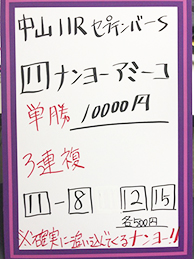 中山11R セプテンバーS
11 ナンヨーアミーコ
単勝 10000円
3連複
11-8 12 15
各500円
※確実に追い込んでくるナンヨー!!